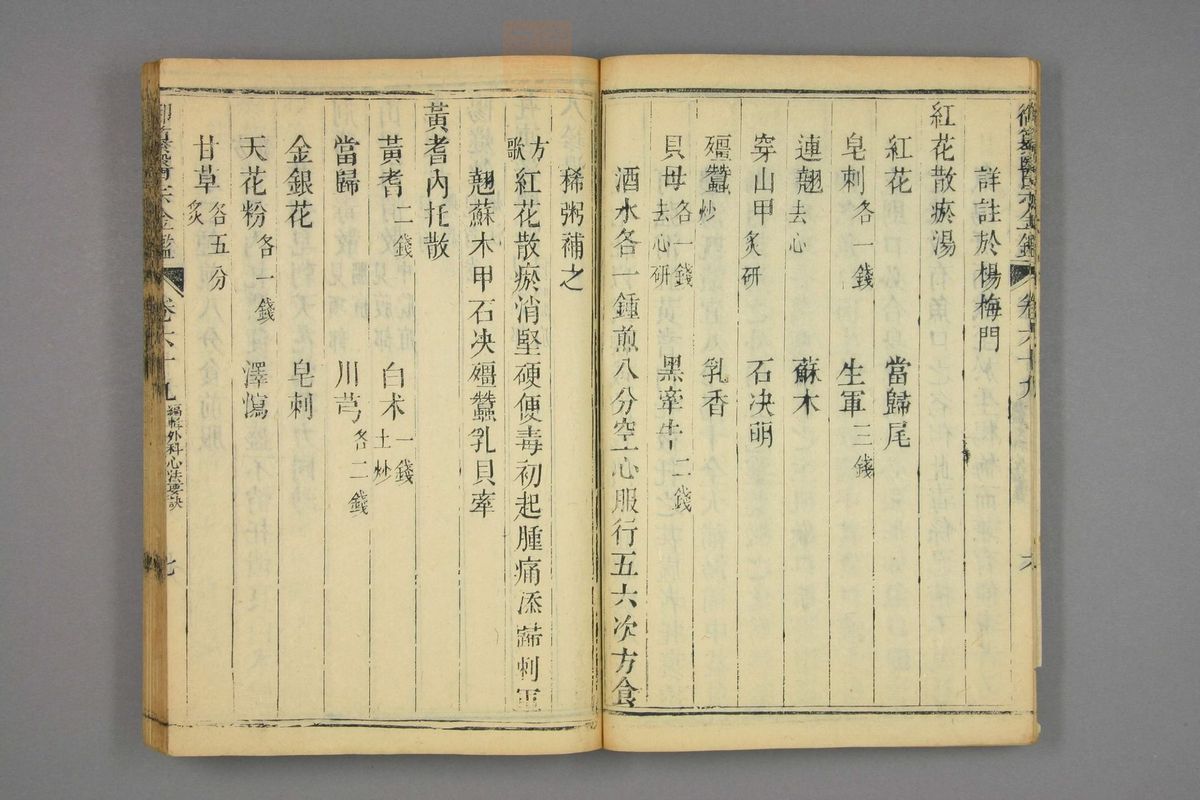 御纂醫宗金鑑 卷六十九 六
詳註於楊梅門
紅花散瘀湯
紅花 當歸尾
皂刺各一錢 生軍三錢
連翹去心 蘇木
穿山甲炙研 石决明
殭蠶炒 乳香
貝母各一錢去心研 黑牽牛二錢
酒水各一鍾煎八分空心服行五六次方食
稀粥補之
方歌 紅花散瘀消堅硬便毒初起腫痛添歸刺軍
翹蘇木甲石决殭蠶乳貝牽
黃耆內托散
黃耆二錢 白术一錢土炒
當歸 川芎各二錢
金銀花 皂刺
天花粉各一錢 澤瀉
甘草炙各五分
御纂醫宗金鑑 卷六十九 編輯外科心法要訣 七